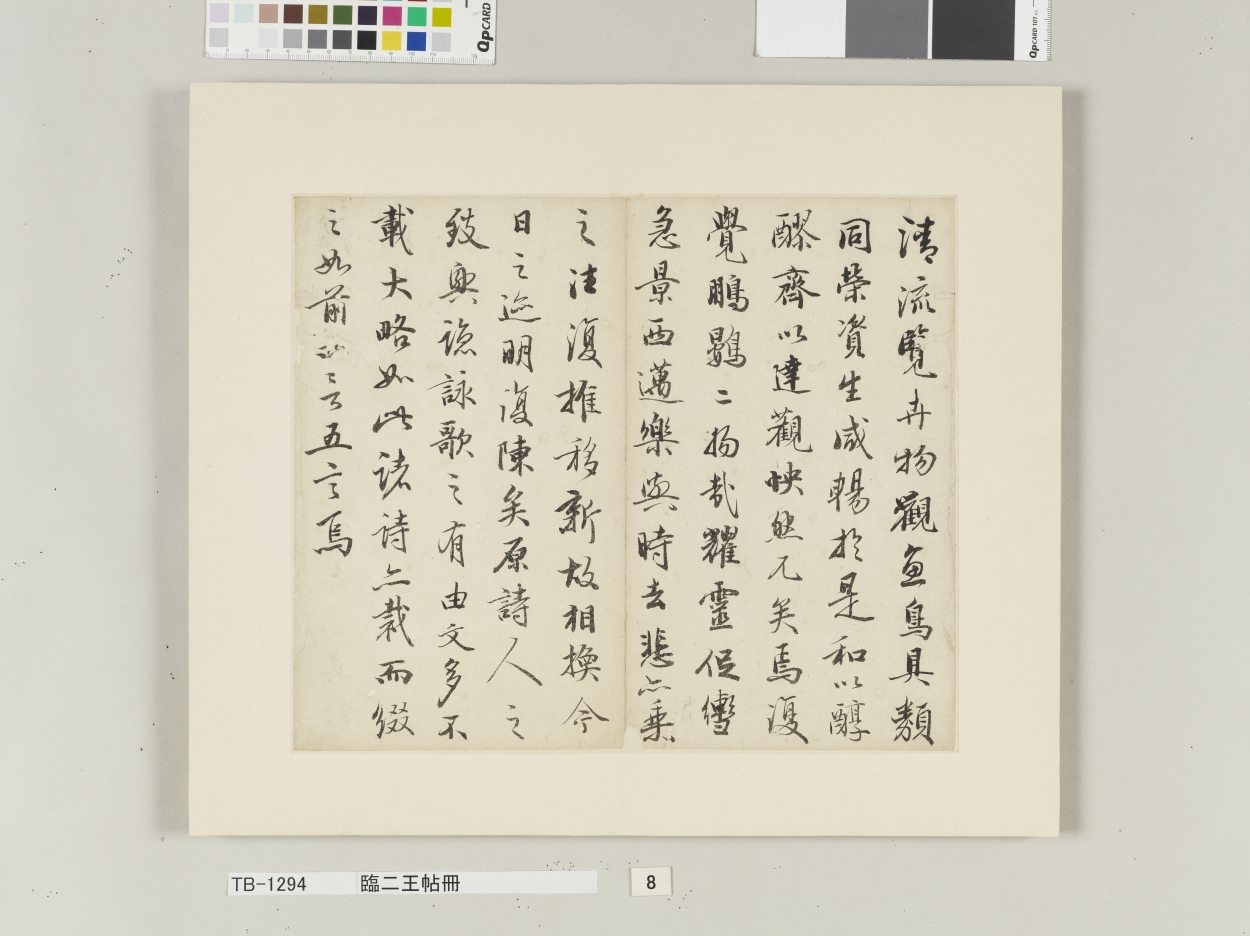 QPCARD
QPCARD 101
清流覽卉物觀魚鳥具類
同榮資生咸暢於是和以醇
醪齊以達觀怏然兀矣焉復
覺鵬鷃二物哉耀靈促轡
急景西邁樂與時去悲亦乗
之往復推移新故相換今
日之迹明復陳矣原詩人之
致興諒詠歌之有由文多不
載大略如此諸詩亦裁而綴
之如前四言五言焉
TB-1294 臨二王帖冊
8